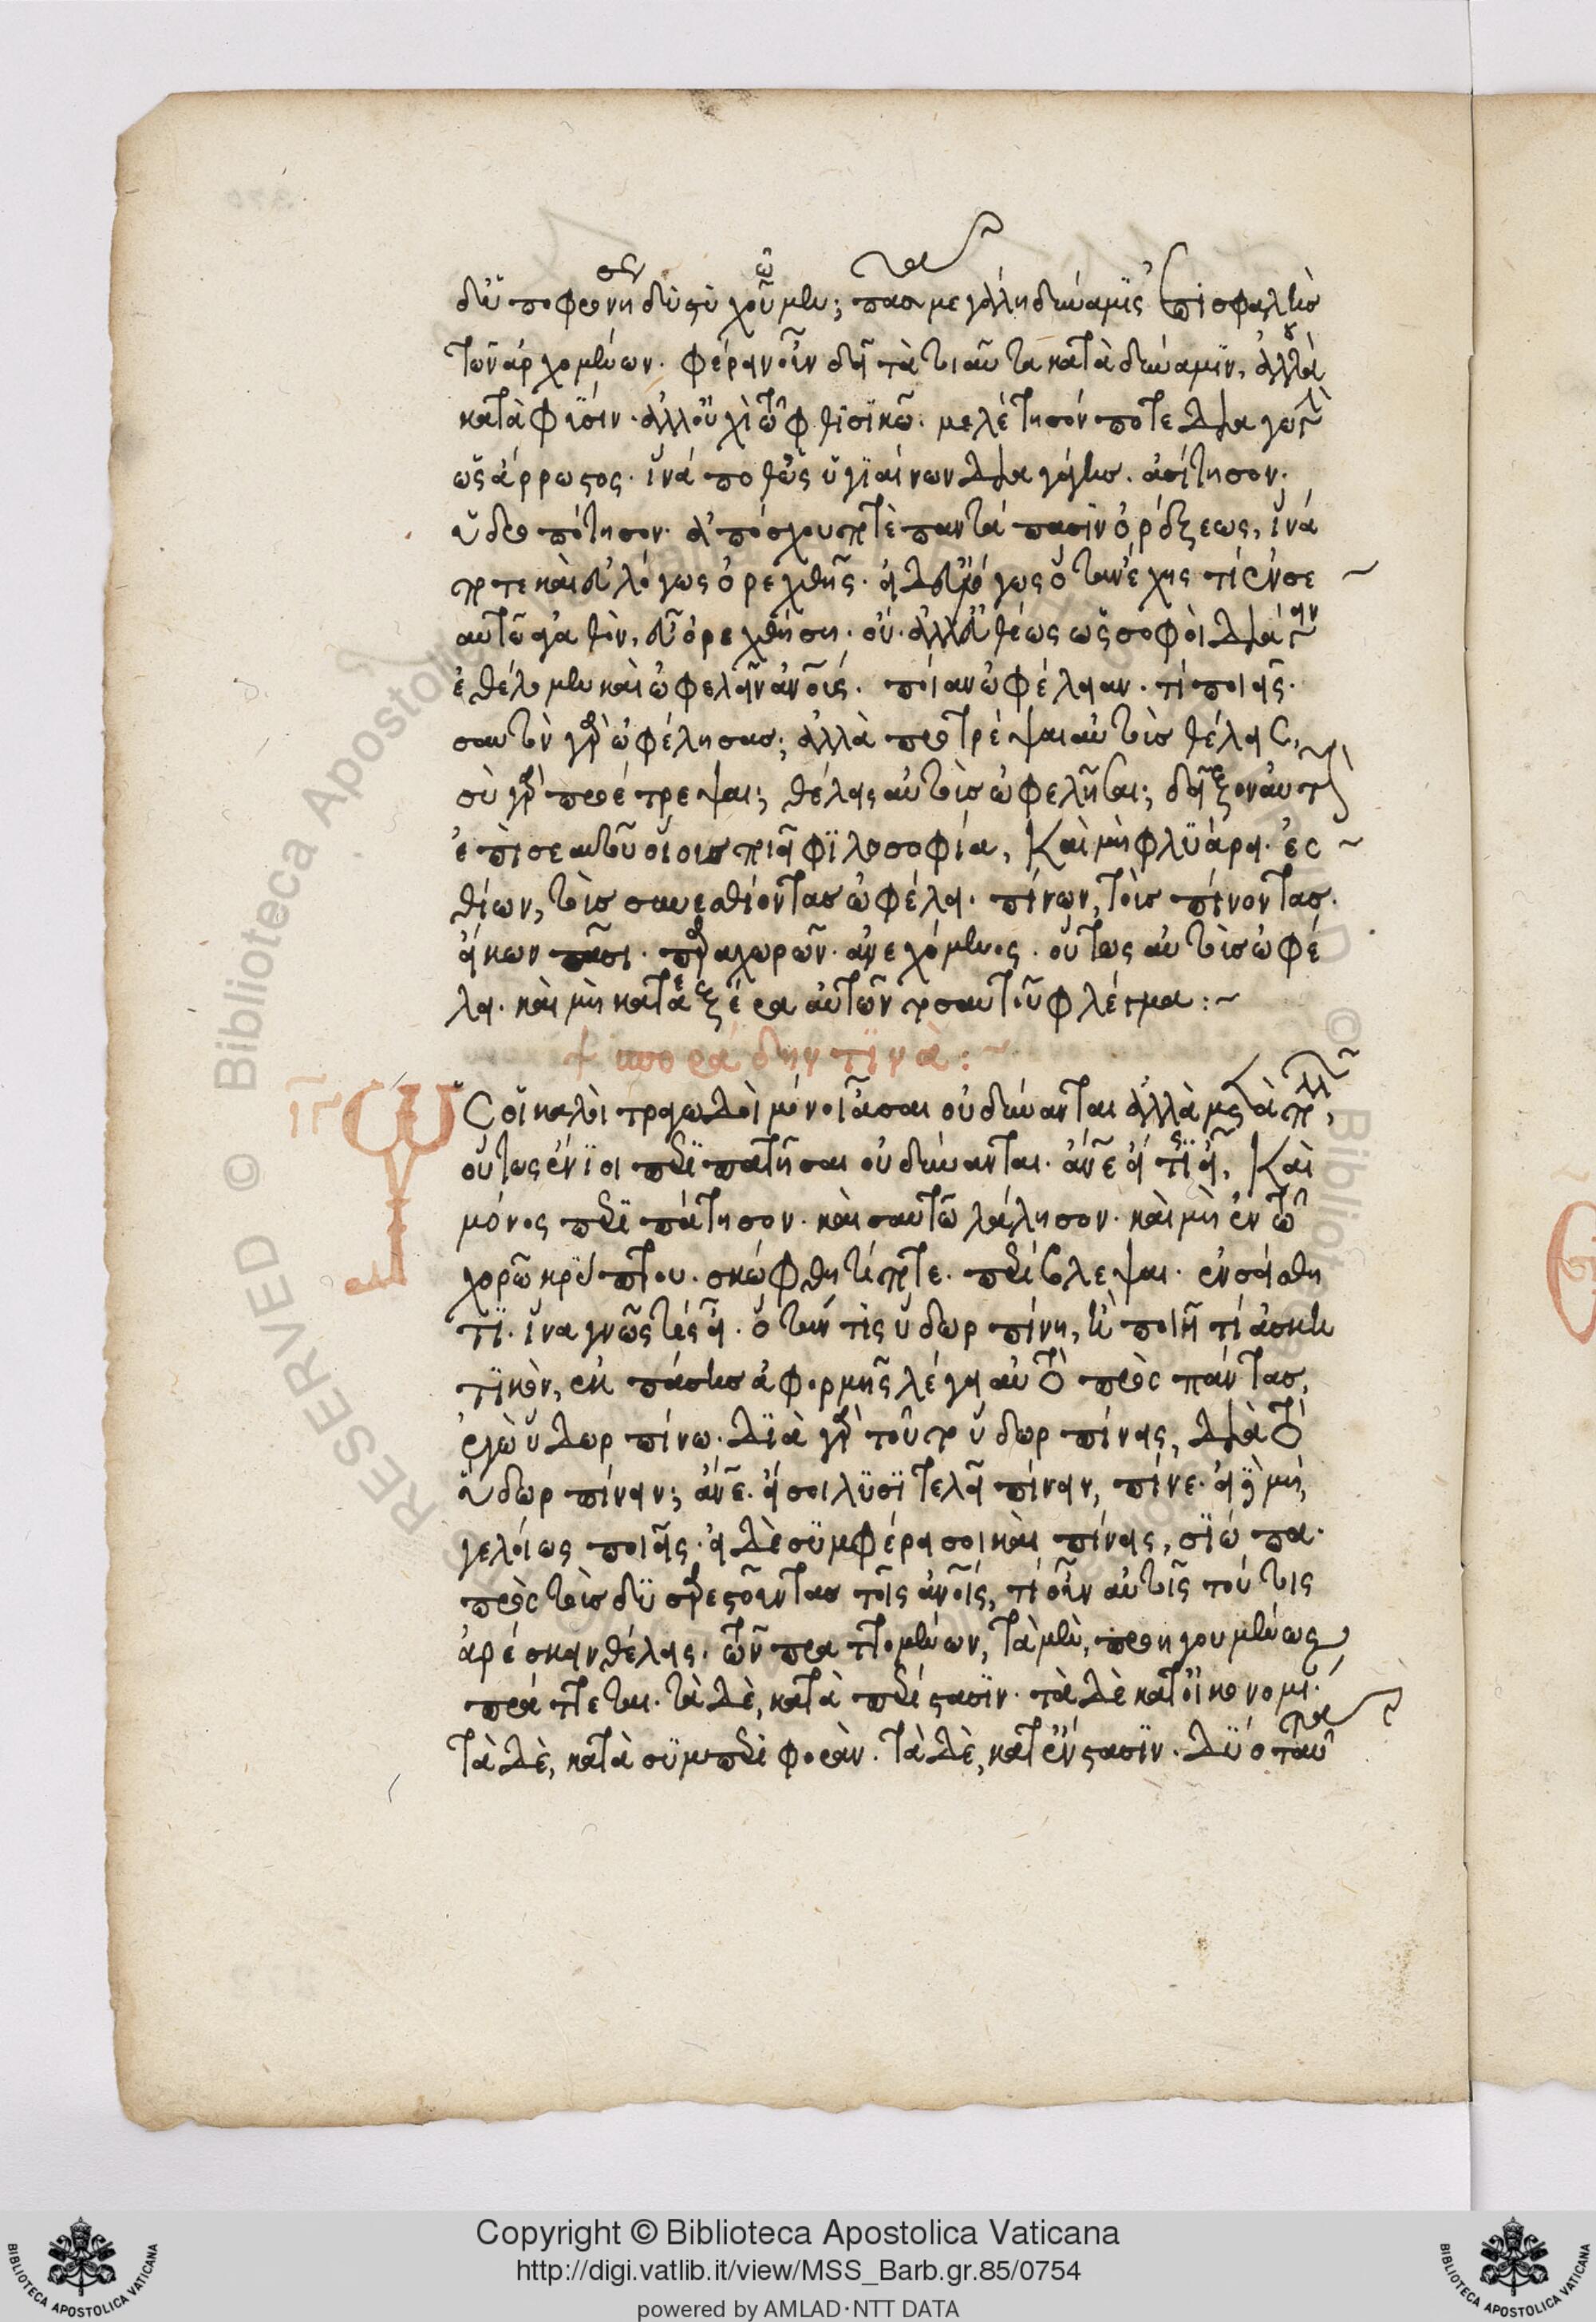 δι' ὑποφωνη δυσὶ χοῦμεν; πᾶσα μεγάλη δύναμις ἐπισφαλὴς
τῶν ἀρχομένων. φέρειν οὖν δεῖ τὰ τοιαῦτα κατὰ δύναμιν, ἀλλὰ
κατὰ φύσιν. ἀλλ' οὐχὶ τῶ φθισικῶ. μελέτησόν ποτε διαγωγὴν
ὡς ἄρρωστος. ἵνά ποθ' ὡς ὑγιαίνων διαγάγης. ἀσίτησον.
ὑδροπότησον. ἀπόσχου ποτὲ παντάπασιν ὀρέξεως, ἵνά
ποτε καὶ εὐλόγως ὀρεχθῆς. εἰ δ' εὐλόγως ὅταν ἔχης τί ἐν σε
αυτῶ ἀγαθὸν, εὖ ὀρεχθήση. οὐ. ἀλλ' εὐθέως ὡς σοφοὶ διάγειν
ἐθέλομεν καὶ ὠφελεῖν ἀνους. ποίαν ὠφέλειαν. τί ποιεῖς.
σαυτὸν γὰρ ὠφέλησας; ἀλλὰ προτρέψαι αὐτοὺς θέλεις,
σὺ γὰρ προέτρεψαι; θέλεις αὐτοὺς ὠφελῆσαι; δεῖξον αὐτοῖς
ἐπὶ σεαυτοῦ οἵους ποιεῖ φιλοσοφία, καὶ μὴ φλυάρει. ἐσ
θίων, τοὺς συνεσθίοντας ὠφέλει. πίνων, τοὺς πίνοντας.
εἴκων πᾶσι. παραχωρῶν. ἀνεχόμενος. οὕτως αὐτοὺς ὠφέ
λει. καὶ μὴ κατεξέρα αὐτῶν τὸ σαυτοῦ φλέγμα :~
+ σποράδην τινὰ :~
ιγ Ὡς οἱ καλοὶ τραγωδοὶ μόνοι ᾶσαι οὐ δύνανται ἀλλὰ μετὰ πολλῶν,
οὕτως ἔνιοι περιπατῆσαι οὐ δύνανται. ἄνε εἴ τις εἶ, καὶ
μόνος περιπάτησον. καὶ σαυτῶ λάλησον. καὶ μὴ ἐν τῶ
χορῶ κρύπτου. σκώφθητί ποτε. περίβλεψαι. ἐνσείσθη
τι. ἵνα γνῶς τίς εἶ. ὅταν τὶς ὕδωρ πίνη, ἢ ποιῆ τί ἀσκη
τικὸν, ἐκ πάσης ἀφορμῆς λέγει αὐτὸ πρὸς πάντας,
ἐγὼ ὕδωρ πίνω. διὰ γὰρ τοῦτο ὕδωρ πίνεις, διὰ τὸ
ὕδωρ πίνειν; ἄνε. εἴ σοι λυσιτελεῖ πίνειν, πῖνε. εἰ δὲ μὴ,
γελοίως ποιεῖς. εἰ δὲ συμφέρει σοι καὶ πίνεις, σιώπα.
πρὸς τοὺς δυσαρεστοῦντας τοῖς ἀνοις, τί οὖν αὐτοῖς τούτοις
ἀρέσκειν θέλεις. τῶν πραττομένων, τὰ μὲν, προηγουμένως
πράττεται. τὰ δὲ, κατὰ περίστασιν. τὰ δὲ κατ' οἰκονομί.
τὰ δὲ, κατὰ συμπεριφορὰν. τὰ δὲ, κατ' ἔνστασιν. δύο ταῦτα
Copyright © Biblioteca Apostolica Vaticana
http://digi.vatlib.it/view/MSS_Barb.gr.85/0754
powered by AMLAD·NTT DATA